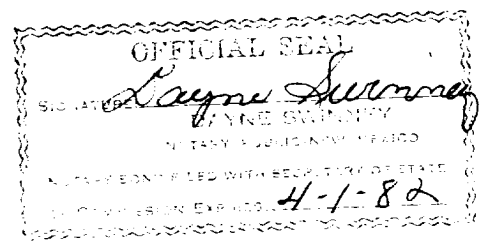 OFFICIAL SEAL
SIGNATURE Swinney
SWINNEY
NOTARY PUBLIC-NEW MEXICO
NOTARY BOND FILED WITH SECRETARY OF STATE
MY COMMISSION EXPIRES 4-1-82